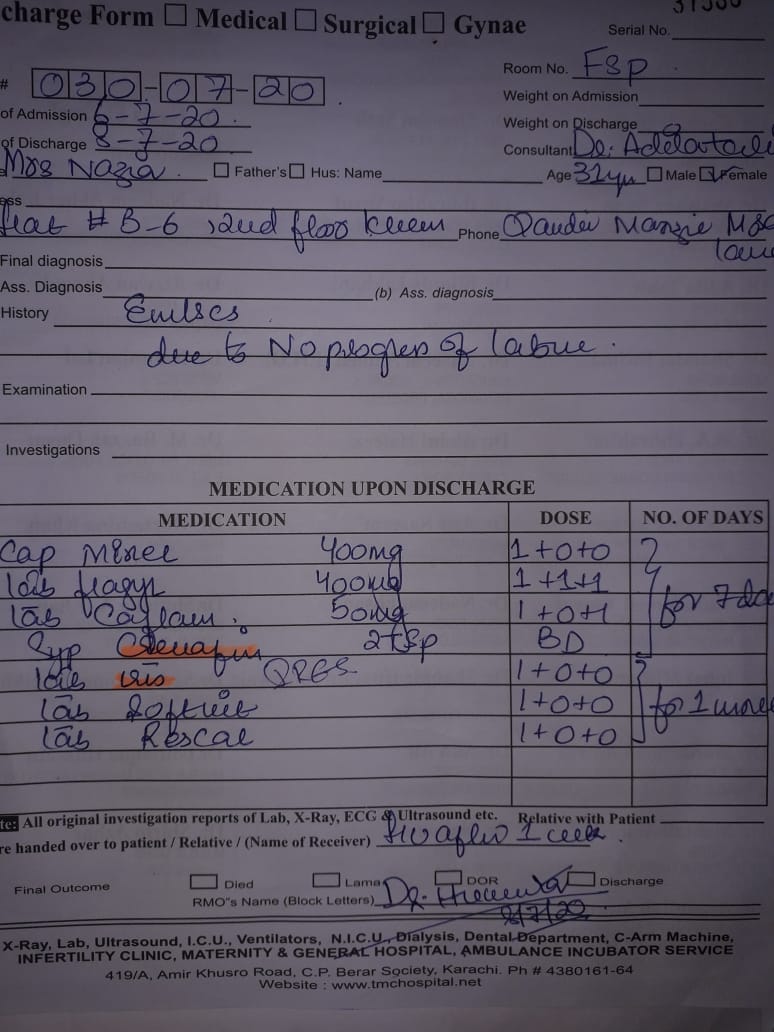 charge Form ☐ Medical ☐ Surgical ☐ Gynae
Serial No.
Room No. FSp
# 030-07-20
Weight on Admission
of Admission 6-7-20
Weight on Discharge
of Discharge 8-7-20
Consultant Dr:
Mrs Nazia ☐ Father's ☐ Hus: Name Age 32yr ☐ Male ☑ Female
ess
# B-6 2nd floor Phone
Final diagnosis
Ass. Diagnosis (b) Ass. diagnosis
History EmLSCS
due to No progress of labue.
Examination
Investigations
MEDICATION UPON DISCHARGE
MEDICATION DOSE NO. OF DAYS
Cap 400mg 1+0+0
Tab flagyl 400mg 1+1+1 for 7 da
Tab Caflam 50mg 1+0+1
Syp 2tsp BD
1+0+0
Tab 1+0+0 for 1
Tab 1+0+0
te: All original investigation reports of Lab, X-Ray, ECG & Ultrasound etc. Relative with Patient
re handed over to patient / Relative / (Name of Receiver) after 1
Final Outcome ☐ Died ☐ Lama ☐ DOR ☐ Discharge
RMO"s Name (Block Letters) Dr.
8/7/20
X-Ray, Lab, Ultrasound, I.C.U., Ventilators, N.I.C.U., Dialysis, Dental Department, C-Arm Machine,
INFERTILITY CLINIC, MATERNITY & GENERAL HOSPITAL, AMBULANCE INCUBATOR SERVICE
419/A, Amir Khusro Road, C.P. Berar Society, Karachi. Ph # 4380161-64
Website : www.tmchospital.net